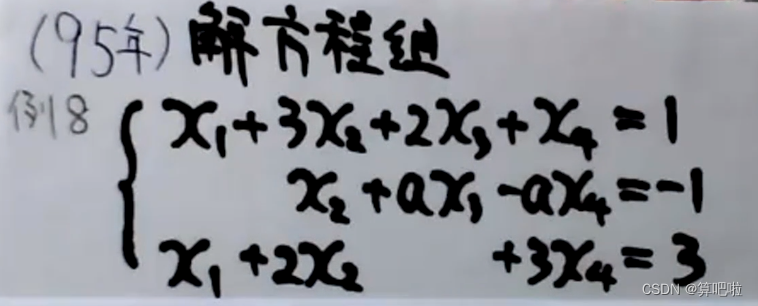 (95年)解方程组
例18 { x₁+3x₂+2x₃+x₄=1
x₂+ax₃-ax₄=-1
x₁+2x₂ +3x₄=3
CSDN @算吧啦